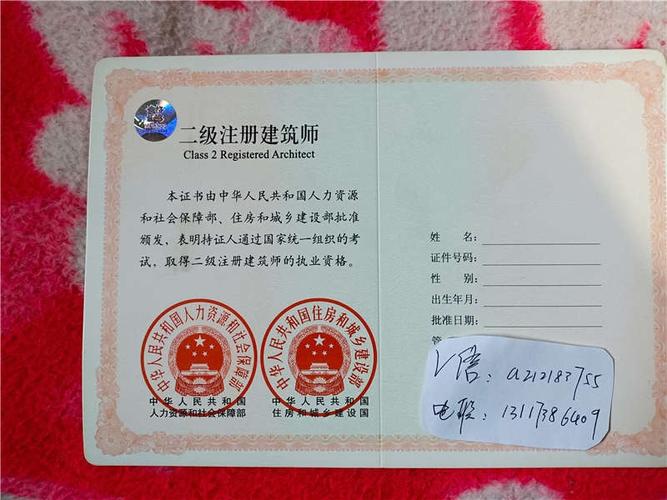 二级注册建筑师
Class 2 Registered Architect
本证书由中华人民共和国人力资源
和社会保障部、住房和城乡建设部批准
颁发，表明持证人通过国家统一组织的考
试，取得二级注册建筑师的执业资格。
中华人民共和国人力资源和社会保障部
中华人民共和国住房和城乡建设部
中华人民共和国
人力资源和社会保障部
中华人民共和国
住房和城乡建设国
姓 名：
证件号码：
性 别：
出生年月：
批准日期：
管
V信：a212183755
电联：13117386409